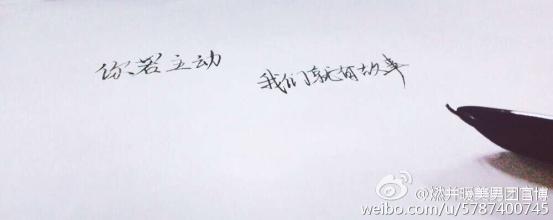 你若主动
我们就有故事
@燃井暖美男团官博
weibo.com/u/5787400745